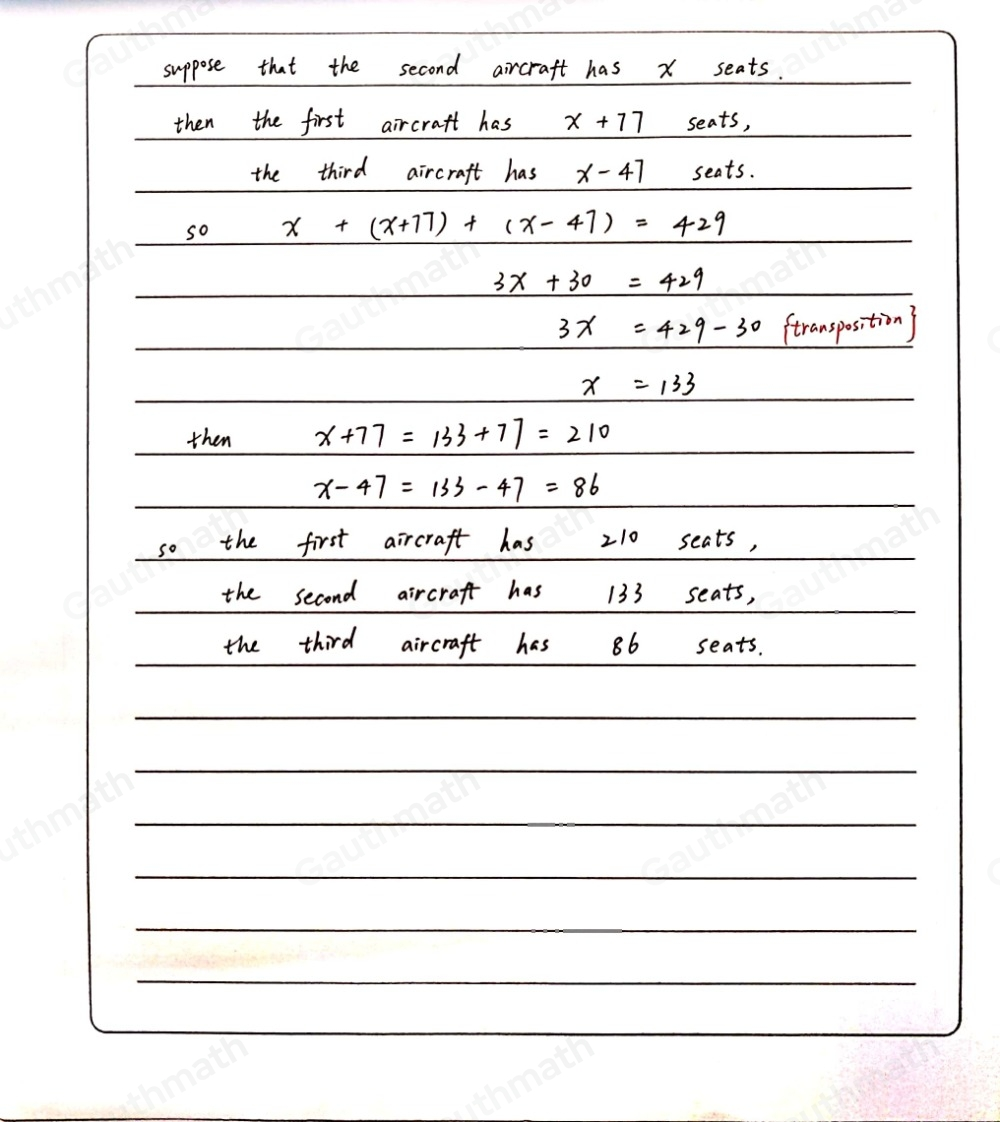 suppose that the second aircraft has x seats.
then the first aircraft has x + 77 seats,
the third aircraft has x - 47 seats.
so x + (x+77) + (x - 47) = 429
3x + 30 = 429
3x = 429 - 30 {transposition}
x = 133
then x + 77 = 133 + 77 = 210
x - 47 = 133 - 47 = 86
so the first aircraft has 210 seats,
the second aircraft has 133 seats,
the third aircraft has 86 seats.
Gauthmath